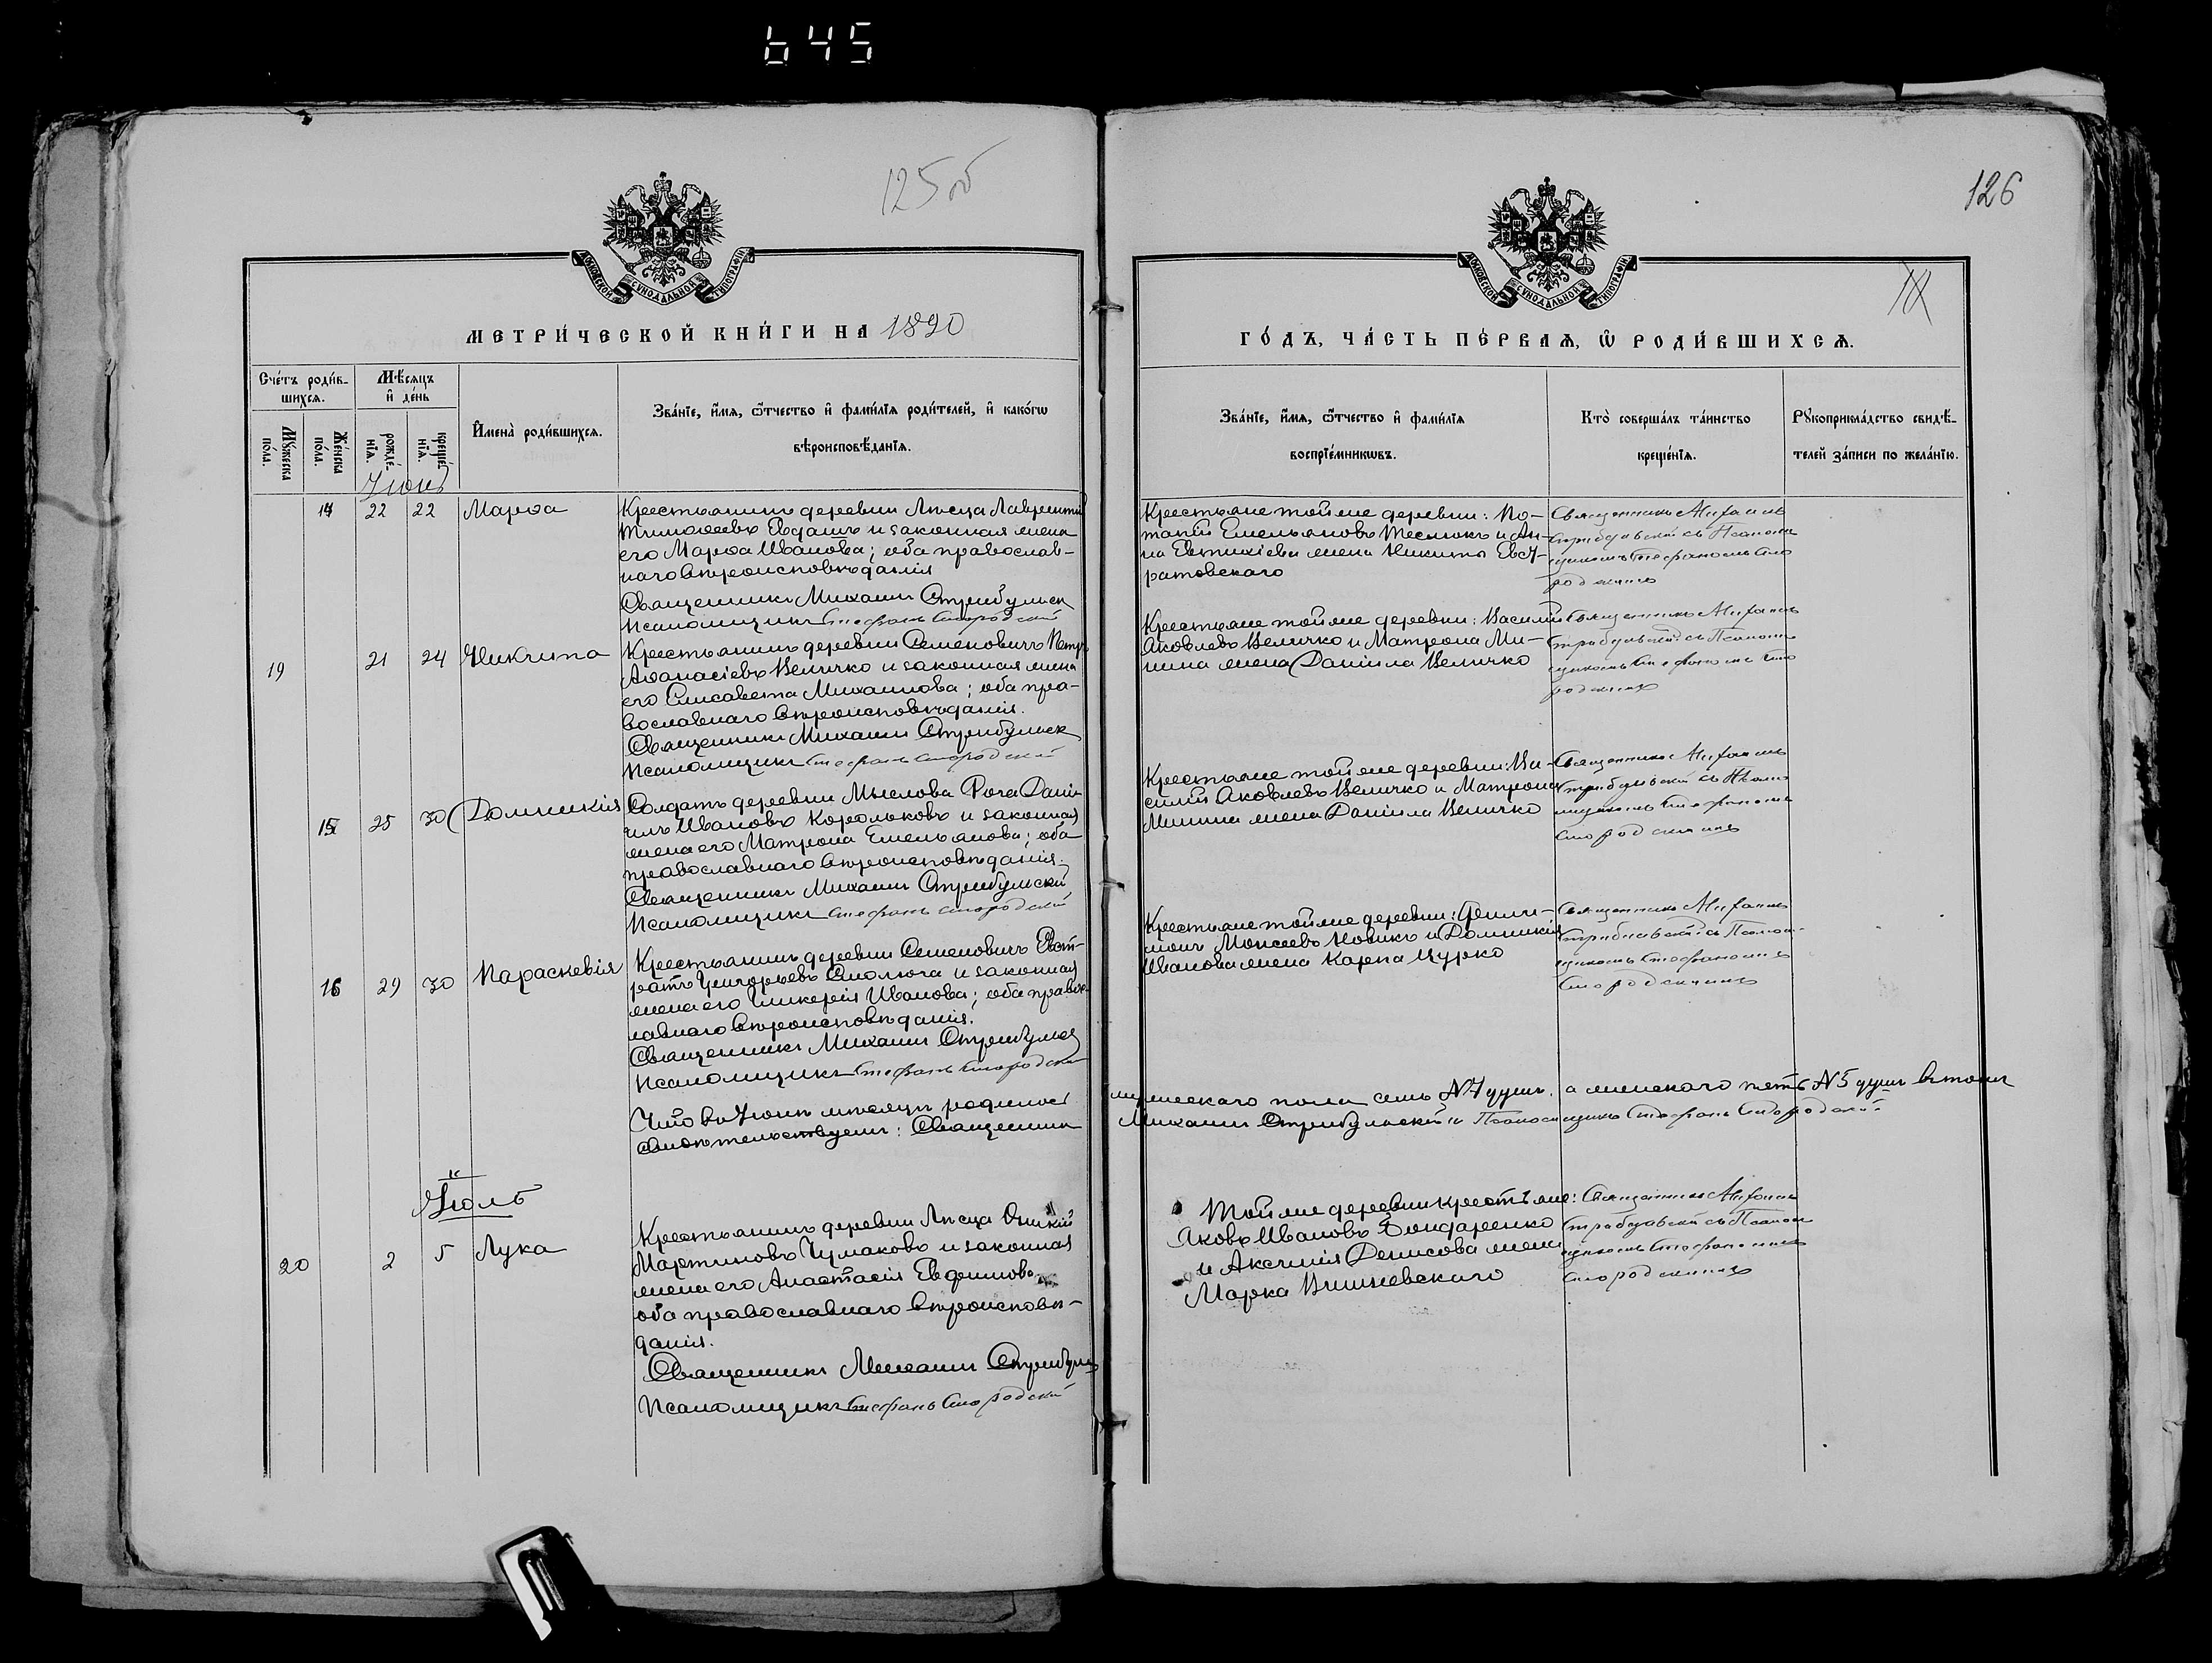 645
125 об
126
МОСКОВСКОЙ СѴНОДАЛЬНОЙ ТИПОГРАФІИ
МОСКОВСКОЙ СѴНОДАЛЬНОЙ ТИПОГРАФІИ
МЕТРИ́ЧЕСКОЙ КНИ́ГИ НА 1890
ГО́ДЪ, ЧА́СТЬ ПЕ́РВАѦ, Ѡ҆ РОДИ́ВШИХСѦ.
Сче́тъ роди́в-
шихсѧ.
Мѣ́сѧцъ
и҆ де́нь
Мꙋ́жеска
по́ла.
Же́нска
по́ла.
рожде́-
нїѧ.
креще́-
нїѧ.
И҆мена̀ роди́вшихсѧ.
Зва́нїе, и҆́мѧ, ѻ҆́тчество и҆ фами́лїѧ роди́телей, и҆ како́гѡ
вѣроисповѣ́данїѧ.
Зва́нїе, и҆́мѧ, ѻ҆́тчество и҆ фами́лїѧ
воспрїе́мникѡвъ.
Кто̀ соверша́лъ та́инство
креще́нїѧ.
Рꙋкоприкла́дство свидѣ́-
телей за́писи по жела́нїю.
Іюнь
14 22 22 Марѳа
Крестьянинъ деревни Лисца Лаврентій
Тимоѳеевъ Евдашъ и законная жена
его Марѳа Иванова; оба православ-
наго вѣроисповѣданія
Священникъ Михаилъ Стрибульск
Псаломщикъ Стефанъ Смородскій
Крестьяне той же деревни: По-
тапій Емельяновъ Теслюкъ и Ан-
на Евтихіева жена Никиты Евст-
ратовскаго
Священникъ Михаилъ
Стрибульскій съ Псалом-
щикомъ Стефаномъ Смо
родскимъ
19 21 24 Никита
Крестьянинъ деревни Семеновичъ Петръ
Аѳанасіевъ Величко и законная жена
его Елисавета Михаилова; оба пра-
вославнаго вѣроисповѣданія.
Священникъ Михаилъ Стрибульск
Псаломщикъ Стефанъ Смородскій
Крестьяне той же деревни: Василій
Яковлевъ Величко и Матрона Ми-
нина жена Даніила Величко
Священникъ Михаилъ
Стрибульскій съ Псалом
щикомъ Стефаномъ Смо
родскимъ
15 25 30 Домникія
Солдатъ деревни Мыслова Рога Дани-
илъ Ивановъ Корольковъ и законная
жена его Матрона Емельянова; оба
православнаго вѣроисповѣданія.
Священникъ Михаилъ Стрибульскій
Псаломщикъ Стефанъ Смородскій
Крестьяне той же деревни: Ва-
силій Яковлевъ Величко и Матрона
Минина жена Даніила Величко
Священникъ Михаилъ
Стрибульскій съ Псалом
щикомъ Стефаномъ
Смородскимъ
16 29 30 Параскевія
Крестьянинъ деревни Семеновичъ Евст-
ратъ Григорьевъ Смолюга и законная
жена его Гликерія Иванова; оба правос-
лавнаго вѣроисповѣданія.
Священникъ Михаилъ Стрибульск
Псаломщикъ Стефанъ Смородскій
Крестьяне той же деревни:
Моисеевъ Новикъ и Домникія
Иванова жена Карпа Цурко
Священникъ Михаилъ
Стрибульскій съ Псалом-
щикомъ Стефаномъ
Смородскимъ
Что въ Іюнѣ мѣсяцѣ родилось мужескаго пола семь №7 душъ, а женскаго пять №5 душъ въ томъ
свидѣтельствуемъ: Священникъ Михаилъ Стрибульскій и Псаломщикъ Стефанъ Смородскій
Іюль
20 2 5 Лука
Крестьянинъ деревни Лисца
Мартиновъ Чумаковъ и законная
жена его Анастасія Евфимова
оба православнаго вѣроисповѣ-
данія.
Священникъ Михаилъ Стрибульск
Псаломщикъ Стефанъ Смородскій
Той же деревни крестьяне:
Яковъ Ивановъ Бондаренко
и Аксинія Денисова жена
Марка Вишневскаго
Священникъ Михаилъ
Стрибульскій съ Псалом
щикомъ Стефаномъ
Смородскимъ